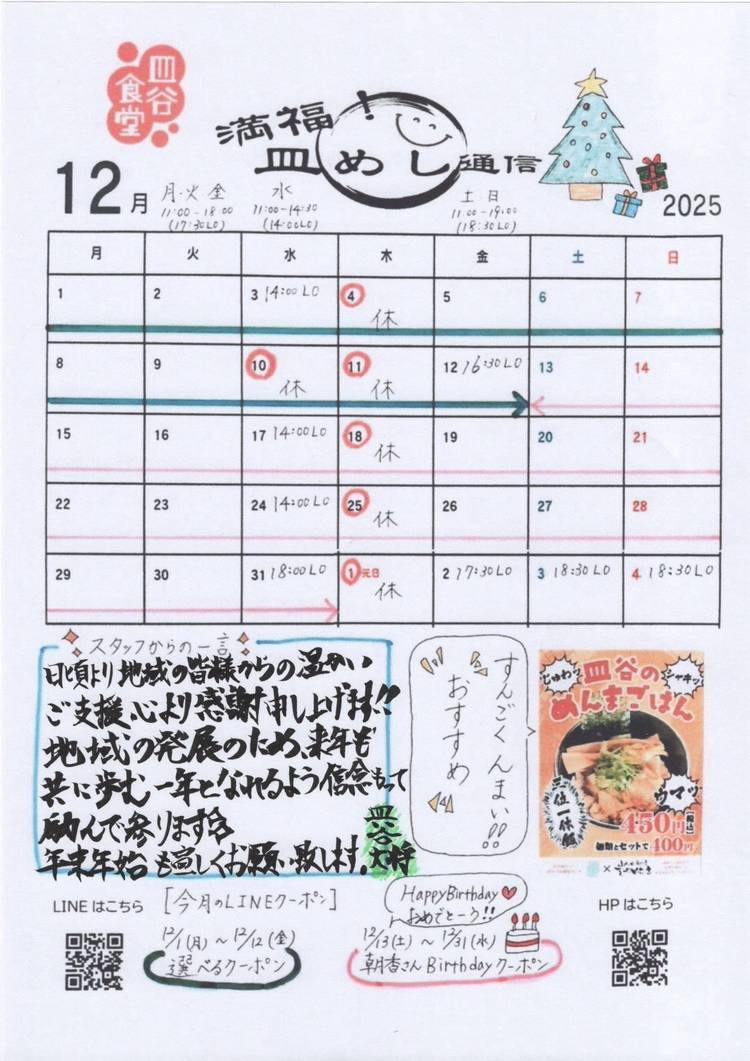 皿谷食堂
満福！
皿めし通信
12月
月・火・金
11:00-18:00
(17:30LO)
水
11:00-14:30
(14:00LO)
土日
11:00-19:00
(18:30LO)
2025
月 火 水 木 金 土 日
1 2 3 14:00LO 4 休 5 6 7
8 9 10 休 11 休 12 16:30LO 13 14
15 16 17 14:00LO 18 休 19 20 21
22 23 24 14:00LO 25 休 26 27 28
29 30 31 18:00LO 1 元日 休 2 17:30LO 3 18:30LO 4 18:30LO
スタッフからの一言
日頃より地域の皆様からの温かい
ご支援、心より感謝申し上げます!!
地域の発展のため、来年も
共に歩む一年となれるよう信念もって
励んで参ります
年末年始も宜しくお願い致します。
皿谷
大将
すんごくんまい!!
おすすめ
じゅわッ
皿谷の
シャキッ
めんまごはん
三位一体飯
ウマッ
450円【税込】
麺類とセットで400円
LINEはこちら
[今月のLINEクーポン]
12/1(月)～12/12(金)
選べるクーポン
HappyBirthday
おめでとーう!!
12/13(土)～12/31(水)
朝香さんBirthdayクーポン
HPはこちら